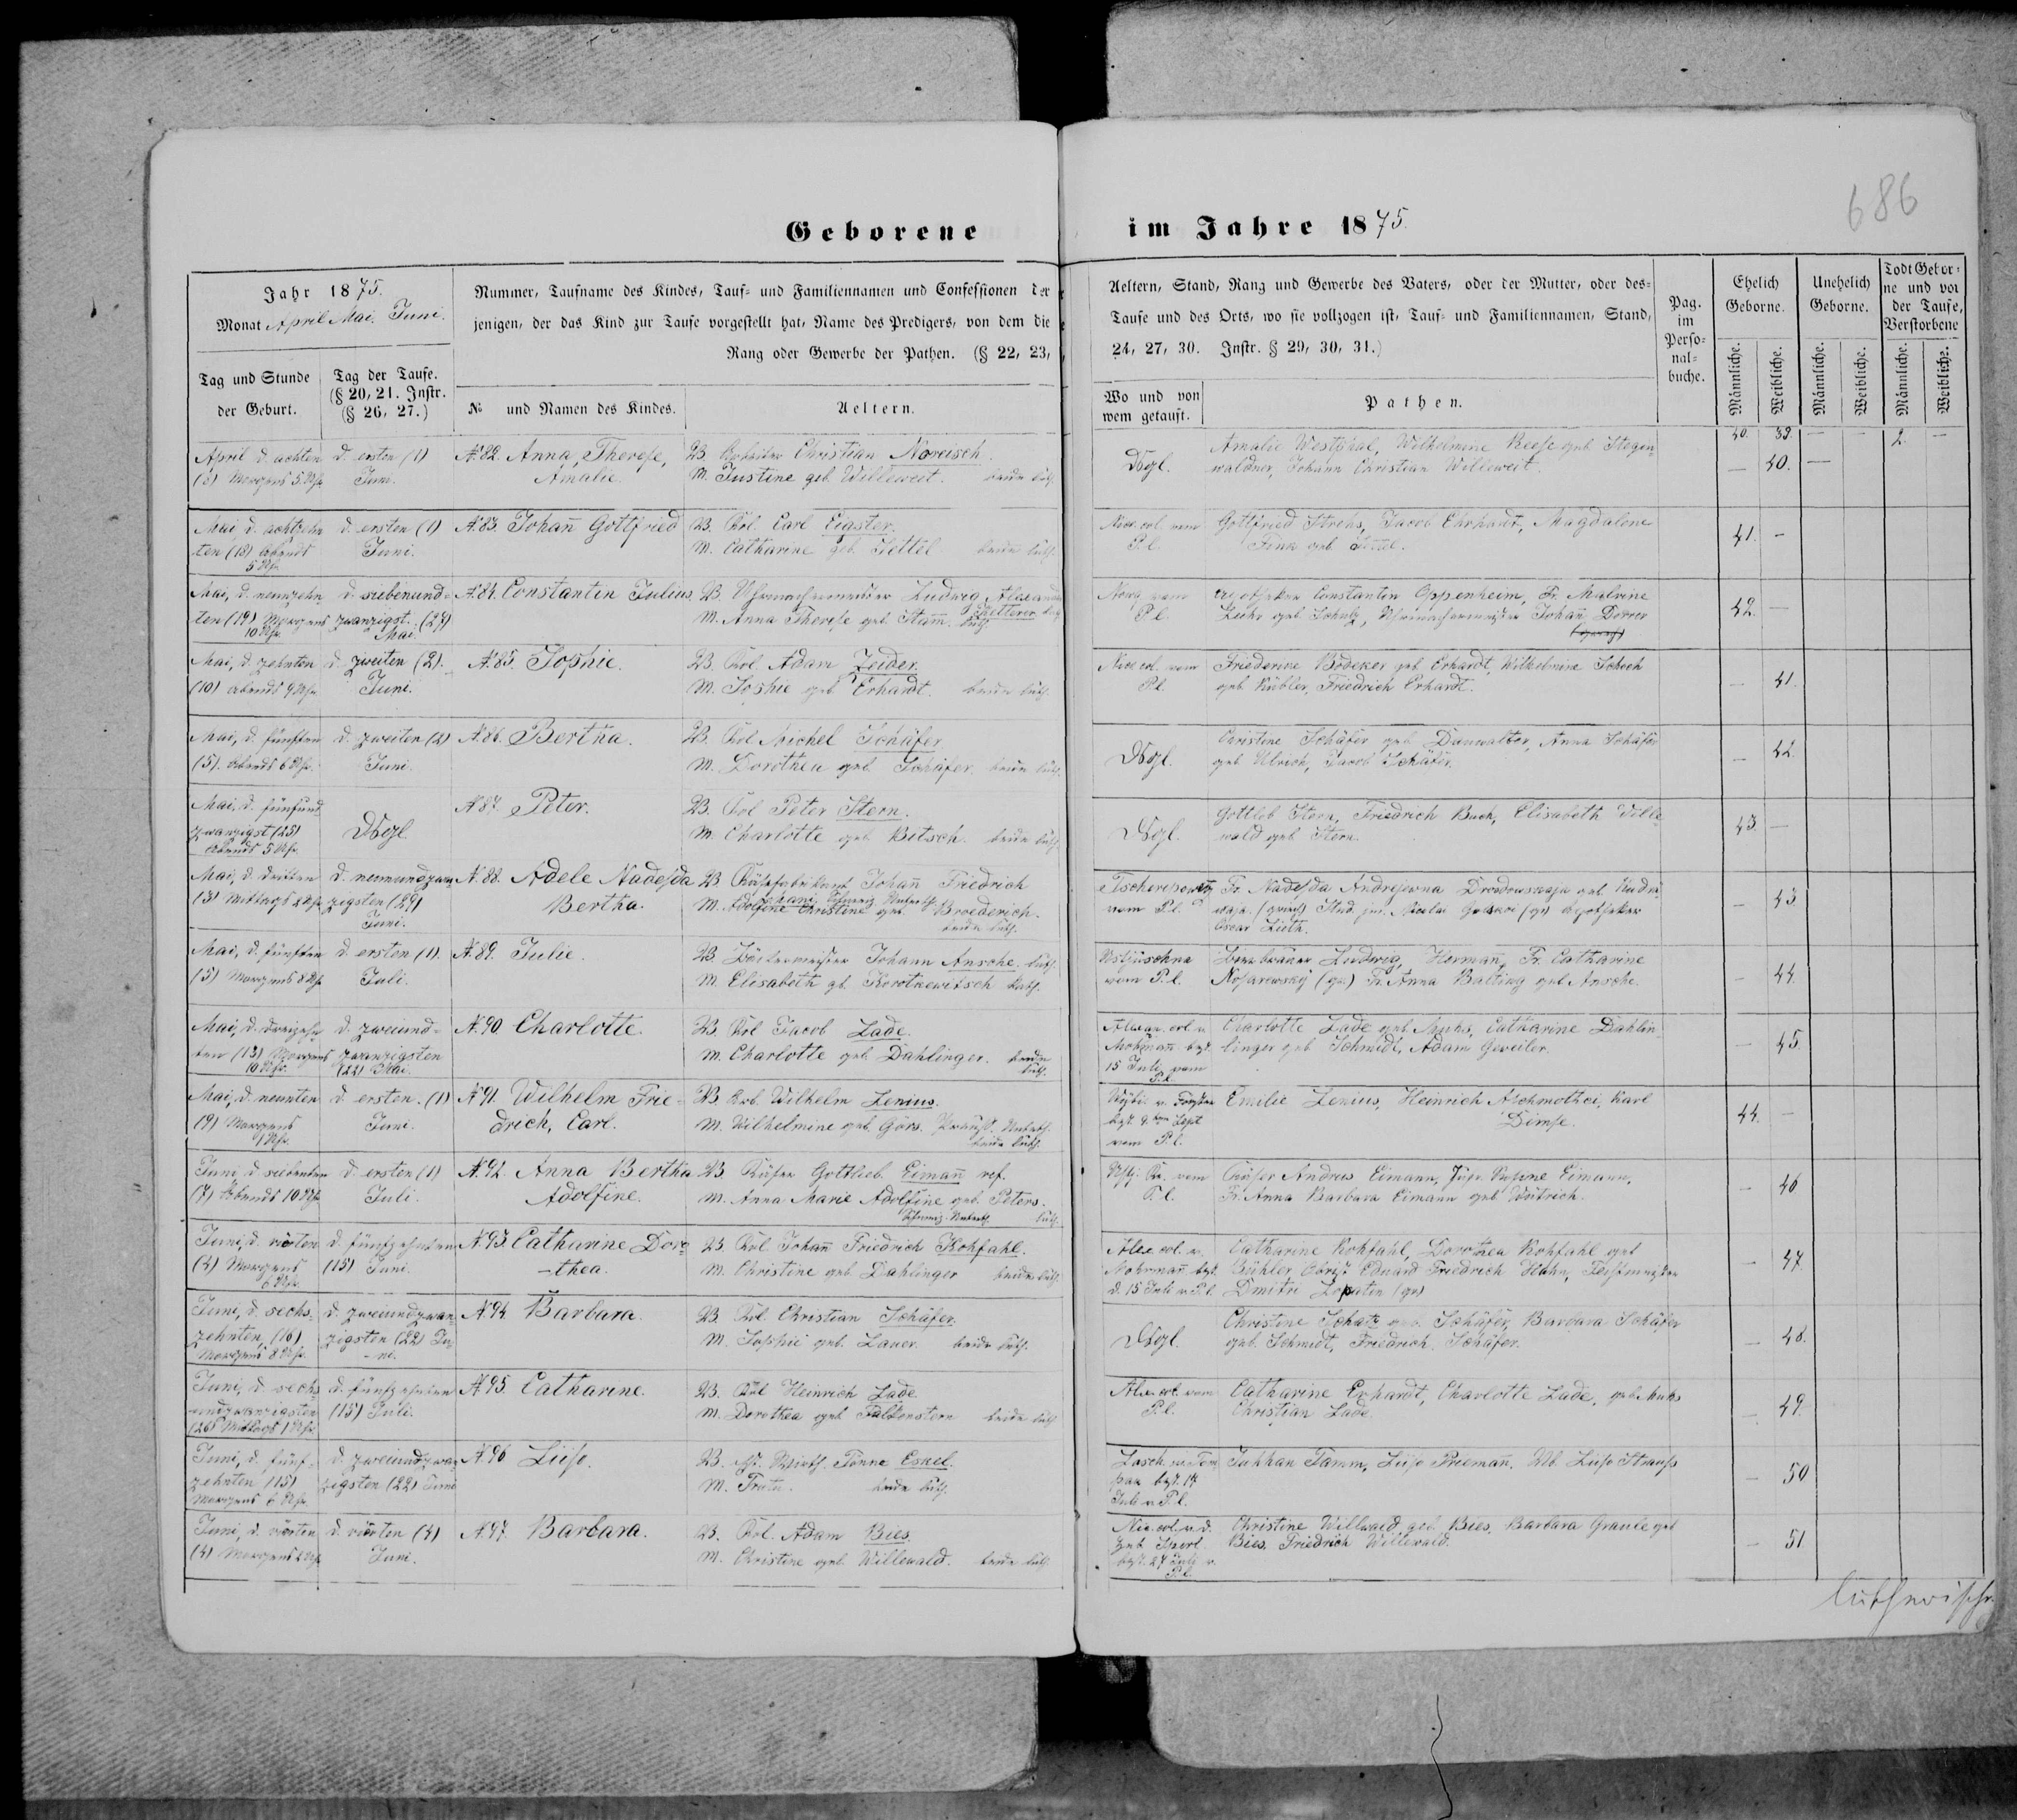 686
Geborene im Jahre 1875.
Jahr 1875.
Monat April Mai. Juni.
Tag und Stunde
der Geburt.
Tag der Taufe.
(§ 20, 21. Instr.
(§ 26, 27.)
Nummer, Taufname des Kindes, Tauf- und Familiennamen und Confessionen der
jenigen, der das Kind zur Taufe vorgestellt hat, Name des Predigers, von dem die
Rang oder Gewerbe der Pathen. (§ 22, 23,
№ und Namen des Kindes.
Aeltern.
Aeltern, Stand, Rang und Gewerbe des Vaters, oder der Mutter, oder des-
Taufe und des Orts, wo sie vollzogen ist, Tauf- und Familiennamen, Stand,
24, 27, 30. Instr. § 29, 30, 31.)
Wo und von
wem getauft.
Pathen.
Pag.
im
Perso-
nal-
buche.
Ehelich
Geborne.
Unehelich
Geborne.
Todt Gebor-
ne und vor
der Taufe,
Verstorbene
Männliche.
Weibliche.
Männliche.
Weibliche.
Männliche.
Weibliche.
40. 39. — — 2. —
April d. achten
(8) Morgens 5 Uhr
d. ersten (1)
Juni.
N. 82. Anna, Therese,
Amalie.
V. Christian Noreisch.
M. Justine geb. Willeweit. beide luth.
Dsgl.
Amalie Westphal, Wilhelmine Reese geb. Stegen-
waldner, Johann Christian Willeweit.
— 40. —
Mai, d. achtzehn
ten (18) Abends
5 Uhr
d. ersten (1)
Juni.
N. 83. Johañ Gottfried
V. Col. Carl Eigster.
M. Catharine geb. Hettel beide luth.
P. l.
Gottfried Strohs, Jacob Ehrhardt, Magdalene
Fink geb.
41. —
Mai, d. neunzehn-
ten (19) Morgens
10 Uhr.
d. siebenund-
zwanzigst. (27)
Mai.
N. 84. Constantin Julius.
V. Uhrmachermeister Ludwig Alexander
M. Anna Therese geb. Stam̃. luth.
vom
P. l.
Apotheker Constantin Oppenheim, Fr. Malvine
geb. Schulz, Uhrmachermeister Johañ Dorrer
42. —
Mai, d. zehnten
(10) Abends 9 Uhr
d. zweiten (2).
Juni.
N. 85. Sophie.
V. Col. Adam Zeider.
M. Sophie geb. Erhardt. beide luth.
Nice col. vom
P. l.
Friederike Bödeker geb. Erhardt, Wilhelmine Schoch
geb. Kübler, Friedrich Erhardt.
— 41.
Mai, d. fünften
(5). Abends 6 Uhr.
d. zweiten (2)
Juni.
N. 86. Bertha.
V. Col. Michel Schäfer
M. Dorothea geb. Schäfer. beide luth.
Dsgl.
Christine Schäfer geb. Anna Schäfer
geb. Ulrich, Jacob Schäfer.
— 42.
Mai, d. fünfund
zwanzigst (25)
Abends 5 Uhr.
Dsgl
N 87. Peter.
V. Col Peter Stern.
M. Charlotte geb Betsch. beide luth.
Dsgl.
Gottlob Stern, Friedrich Buch, Elisabeth Wille-
wald geb. Stern.
43. —
Mai, d. dritten
(3) Mittags
d. neunundzwan
zigsten (29)
Juni.
N. 88. Adele Nadesda
Bertha.
V. Käsefabrikant Johañ Friedrich
M. Adolfine Christine geb. Broederich.
beide luth.
vom P. l.
Fr. Nadesda Andrejewna Drosdowskaja geb.
Apotheker
Oscar Lieth.
— 43
Mai, d. fünften
(5) Morgens 8 Uhr
d. ersten (1).
Juli.
N. 89. Julie.
V. Bäckermeister Johann Ansche. luth.
M. Elisabeth gb. Korotkewitsch luth.
Ustjuschna
vom P. l.
Bierbrauer Ludwig Hermañ, Fr. Catharine
Nosarewsky (gr.) Fr. Anna Balting geb. Ansche.
— 44.
Mai, d. dreizehn
ten (13) Morgens
10 Uhr.
d. zweiund-
zwanzigsten
(22) Mai.
N. 90. Charlotte.
V. Col. Jacob Lade.
M. Charlotte geb. Dahlinger. beide
luth.
15 Juli vom
P. l.
Charlotte Lade geb. Muhs, Catharine Dahlin-
linger geb. Schmidt, Adam Geweiler.
— 45.
Mai, d. neunten
(9) Morgens
1 Uhr.
d. ersten. (1)
Juni.
N 91. Wilhelm Frie-
drich, Carl.
V. Arb. Wilhelm Zenius.
M. Wilhelmine geb. Görs.
beide luth.
vom P. l.
Emilie Zenius, Heinrich Aschmothei, Karl
Dimse.
44. —
Juni, d. siebenten
(7) Abends 10 Uhr
d. ersten (1)
Juli.
N. 92. Anna Bertha
Adolfine.
V. Käser Gottlieb Eimañ ref.
M. Anna Marie Adolfine geb. Peters.
luth.
vom
P. l.
Käser Andreas Eimann, Jgfr. Rosine Eimann,
Fr. Anna Barbara Eimann geb. Wütrich.
— 46
Juni, d. vierten
(4) Morgens
6 Uhr
d. fünfzehnten
(15) Juni.
N 93. Catharine Doro-
-thea.
V. Col. Johañ Friedrich Kohfahl.
M. Christine geb. Dahlinger beide luth.
Alex. col. v.
d. 15 Juli v. P. l.
Catharine Kohfahl, Dorothea Kohfahl geb
Bühler, Obrist Eduard Friedrich Hahn,
Dmitri Lopatin (gr)
— 47
Juni, d. sechs-
zehnten (16)
Morgens 8 Uhr.
d. zweiundzwan-
zigsten (22) Ju-
- ni.
N. 94. Barbara.
V. Col. Christian Schäfer.
M. Sophie geb. Lauer. beide luth.
Dsgl.
Christine Schatz geb. Schäfer, Barbara Schäfer
geb. Schmidt, Friedrich Schäfer.
— 48.
Juni, d. sechs
undzwanzigsten
(26) Mittags 1 Uhr.
d. fünfzehnten
(15) Juli.
N. 95. Catharine.
V. Col Heinrich Lade
M. Dorothea geb Falkenstern beide luth.
Alex. col. vom
P. l.
Catharine Erhardt, Charlotte Lade, geb. Muhs
Christian Lade
— 49.
Juni, d. fünf-
zehnten (15)
Morgens 6 Uhr
d. zweiundzwan
zigsten (22) Juni
N. 96 Liiso.
V. Tõnne Eskel.
M. Truta. beide luth.
Juli v. P. l.
Juhhan Tamm, Liiso Priemañ. Liiso Strauss
— 50
Juni, d. vierten
(4) Morgens
d. vierten (4)
Juni.
N. 97. Barbara.
V. Col. Adam Bies
M. Christine geb. Willewald. beide luth.
27 Juli v.
P. l.
Christine Willwald geb. Bies, Barbara Graule geb
Bies, Friedrich Willewald.
— 51